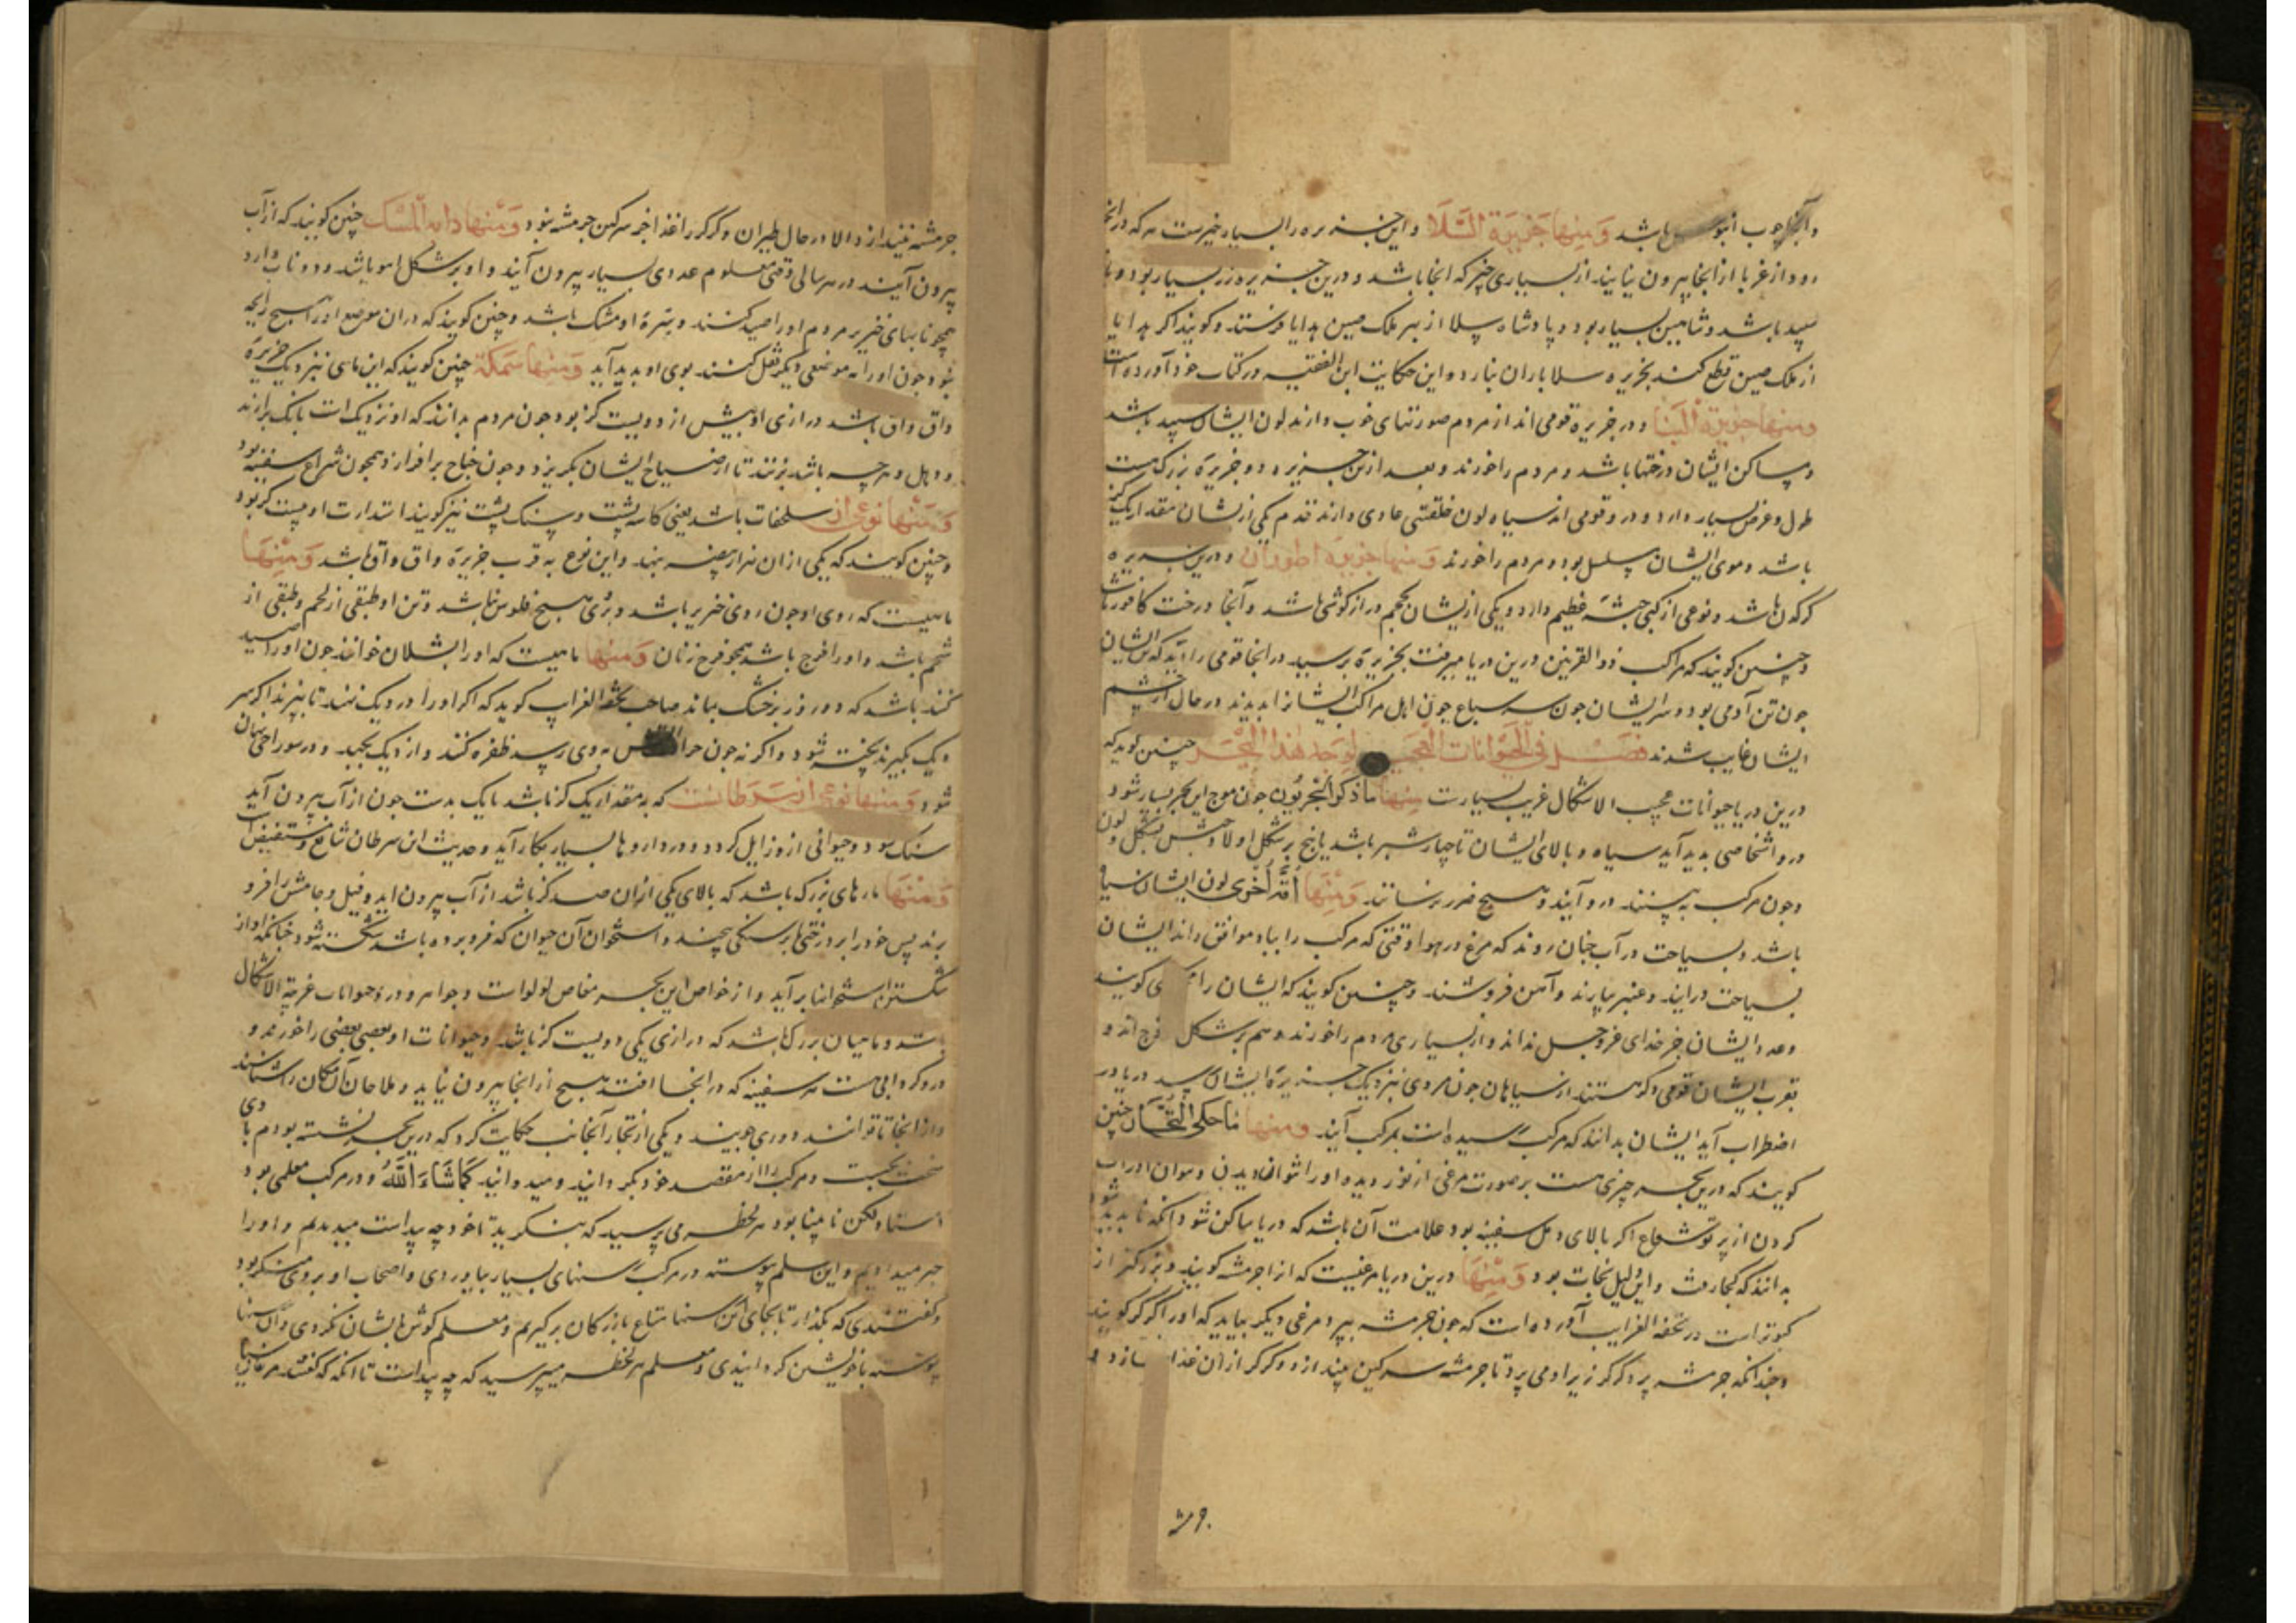 باشد ومنها جزیرة السلا واین جزیره را بسیار خیرست هر که در انجا
رود از غربا از انجا بیرون نیاید از بسیاری خیر که انجا باشد و درین جزیره زر بسیار بود و باز
سپید باشد و شاهین بسیار بود و پادشاه سلا از بهر ملک صین هدایا فرستد و کویند اکر هدایا
از ملک صین قطع کند بجزیره سلا باران نبارد و این حکایت ابن الفقیه در کتاب خود آورده است
ومنها جزیرة البنا و در جزیره قومی اند از مردم صورتهای خوب دارند لون ایشان سپید باشد
و مساکن ایشان درختها باشد و مردم را خورند و بعد ازین جزیره دو جزیرهٔ بزرک هست
طول و عرض بسیار دارد و در و قومی اند سیاه لون خلقتی عادی دارند قدم یکی ازیشان مقدار یک کز
باشد و موی ایشان مسلسل بود و مردم را خورند ومنها جزیرة اطوران و درین جزیره
کرکدن باشد و نوعی از کپی جثهٔ عظیم دارد و یکی ازیشان بحجم دراز کوشی باشد و آنجا درخت کافور باشد
و چنین کویند که مراکب ذو القرنین درین دریا میرفت بجزیرهٔ برسید در انجا قومی را دید که تن ایشان
چون تن آدمی بود و سر ایشان چون سر سباع چون اهل مراکب ایشانرا بدیدند در حال از چشم
ایشان غایب شدند فصل فی الحیوانات العجیبة یوجد هذا البحر چنین کوید که
درین دریا حیوانات عجیب الاشکال غریب بسیارست منها ما ذکر البحریون چون موج این بحر بسیار شود
درو اشخاصی پدید آید سیاه و بالای ایشان تا چهار شبر باشد یا پنج بر شکل اولاد حبش بشکل و لون
و چون مرکب به بینند درو آیند و هیچ ضرر نرسانند ومنها امة اخری لون ایشان سیاه
باشد و بسیاحت در آب چنان روند که مرغ در هوا وقتی که مرکب را باد موافق راند ایشان
بسیاحت درایند و عنبر بیارند و آهن فروشند و چنین کویند که ایشان را
وعدد ایشان جز خدای عز وجل نداند و از بسیاری مردم را خورند و هم بر شکل
بقرب ایشان قومی دکر هستند از سیاهان چون مردی نزدیک جزیرهٔ ایشان رسد دریا در
اضطراب آید ایشان بدانند که مرکب رسیده است بمرکب آیند ومنها ما حکی التجار چنین
کویند که درین بحر چیزی هست بر صورت مرغی از نور دیده او را نتوان دیدن
کردن از پرتو شعاع اکر بالای دقل سفینه بود علامت آن باشد که دریا ساکن شود آنکه ناپدید شود
ندانند که کجا رفت و این دلیل نجات بود ومنها درین دریا مرغیست که انرا جرمشه کویند و بزرکتر از
کبوتراست در تحفه الغرایب آورده است که چون جرمشه بپرد مرغی دیکر بیاید که او را کرکر کویند
و چندانکه جرمشه پرد کرکر زیر او می پرد تا جرمشه سرکین بیندازد و کرکر از ان غذا سازد و
جرمشه
جرمشه نیندازد الا در حال طیران و کرکر را غذا جز سرکین جرمشه نبود ومنها دابة المسک چنین کویند که از آب
بیرون آیند در هر سالی وقتی معلوم عددی بسیار بیرون آیند و او بر شکل اهو باشد و دو ناب دارد
همچو نابهای خنزیر مردم او را صید کنند و سرهٔ او مشک باشد و چنین کویند که در ان موضع او را هیچ رایحه
نبود چون او را به موضعی دیکر نقل کنند بوی او پدید آید ومنها سمکة چنین کویند که این ماهی نزدیک جزیرهٔ
واق واق باشد درازی او بیش از دویست کز بود چون مردم بدانند که او نزدیک است بانک برارند
و دهل و هر چه باشد بزنند تا از صیاح ایشان بکریزد و چون جناح بر افرازد همچون شراع سفینه بود
ومنها نوعی از سلحفات باشد یعنی کاسه پشت و سنک پشت نیز کویند استدارت او بیست کز بود
و چنین کویند که یکی از ان هزار بیضه بنهد و این نوع به قرب جزیرهٔ واق واق باشد ومنها
ماهیست که روی او چون روی خنزیر باشد و بروی هیچ فلوس نباشد و تن او طبقی از لحم و طبقی از
شحم باشد و او را فرج باشد همچو فرج زنان ومنها ماهیست که او را شلان خوانند چون او را صید
کنند باشد که دو روز بر خشک بماند صاحب تحفه الغرایب کوید که اکر او را در دیک نهند تا بپزند اکر سر
دیک بکیرند پخته شود و اکر نه چون حرارت آتش بدوی رسد ظفره کند و از دیک بجهد
شود ومنها نوعی از سرطانست که به مقدار یک کز باشد یا یک بدست چون از آب بیرون آید
سنک شود و حیوانی ازو زایل کردد و در داروها بسیار بکار آید و حدیث این سرطان شایع و مستفیض است
ومنها مارهای بزرک باشد که بالای یکی ازان صد کز باشد از آب بیرون اید و فیل و جامش را فرو
برند پس خود را بر درختی یا بر سنکی پیچند و استخوان آن حیوان که فرو برده باشد شکسته شود چنانکه آواز
شکستن استخوانها برآید و از خواص این بحر مغاص لولوات و جواهر و درو حیوانات غریبة الاشکال
باشد و ماهیان بزرک باشد که درازی یکی دویست کز باشد و حیوانات او بعضی بعضی را خورند و
درو کردابی هست هر سفینه که در انجا افتد هیچ از انجا بیرون نیاید و ملاحان آن مکان را شناسند
و از انجا تا توانند دوری جویند و یکی از تجار آنجانب حکایت کرد که درین بحر نشسته بودم بادی
سخت بجست و مرکب را از مقصد خود بکردانید و میدوانید کما شاء الله و در مرکب معلمی بود
استاد ولکن نابینا بود هر لحظه می پرسید که بنکرید تا خود چه پیداست میدیدیم و او را
خبر میدادیم و این معلم پیوسته در مرکب رسنهای بسیار بیاوردی و اصحاب او بر وی منکر بود
و کفتندی که بکذار تا بجای این رسنها متاع بازرکان برکیریم و معلم کوش بایشان نکردی و آن رسنها
پیوسته با خویشتن کردانیدی و معلم هر لحظه میپرسید که چه پیداست تا انکه که کفتند مرغان